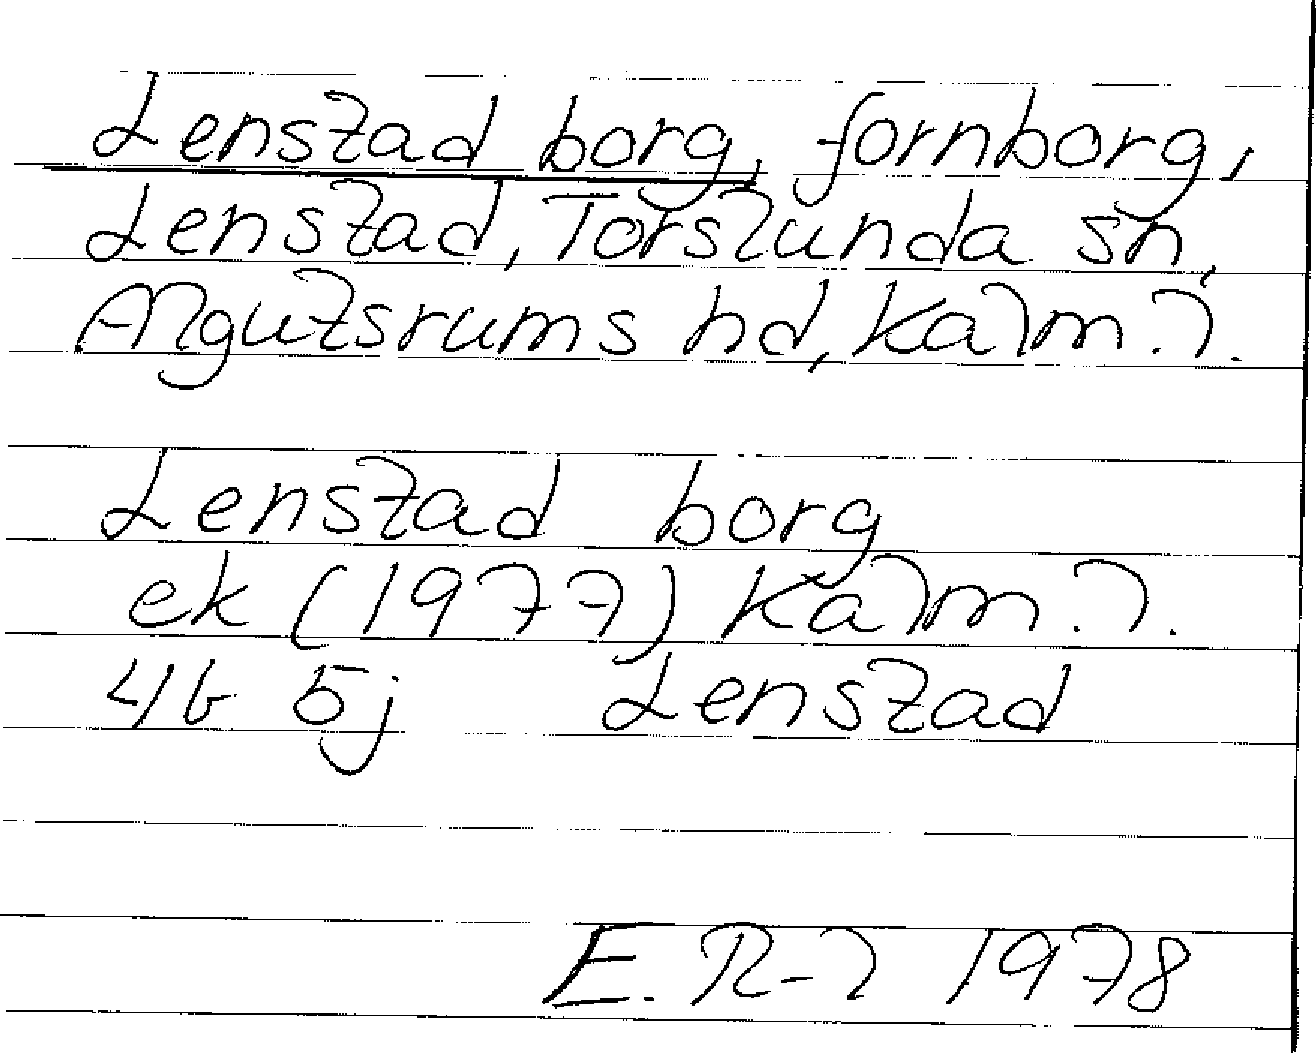 Lenstad borg, fornborg,
Lenstad, Torslunda sn,
Algutsrums hd, Kalm. l.
Lenstad borg
ek (1977) Kalm. l.
4G 5j Lenstad
E. R-l 1978